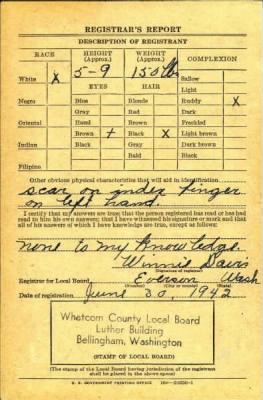 REGISTRAR'S REPORT
DESCRIPTION OF REGISTRANT
RACE HEIGHT (Approx.) WEIGHT (Approx.) COMPLEXION
5-9 150 lbs
White X Sallow
EYES HAIR Light
Negro Blue Blonde Ruddy X
Gray Red Dark
Oriental Hazel Brown Freckled
Brown + Black X Light brown
Indian Black Gray Dark brown
Bald Black
Filipino
Other obvious physical characteristics that will aid in identification
scar on index finger
on left hand.
I certify that my answers are true; that the person registered has read or has had
read to him his own answers; that I have witnessed his signature or mark and that
all of his answers of which I have knowledge are true, except as follows:
none to my knowledge.
Winnie Davis
(Signature of registrar)
Registrar for Local Board Everson Wash
(Number) (City or county) (State)
Date of registration June 30, 1942
Whatcom County Local Board
Luther Building
Bellingham, Washington
(STAMP OF LOCAL BOARD)
(The stamp of the Local Board having jurisdiction of the registrant
shall be placed in the above space)
U. S. GOVERNMENT PRINTING OFFICE